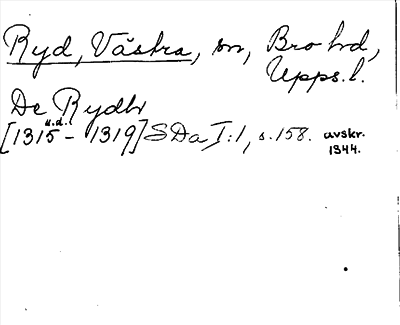 Ryd, Västra, sn, Bro hd,
Upps. l.
De Rydh
u.d.
[1315 – 1319] SDa I:1, s. 158. avskr.
1344.